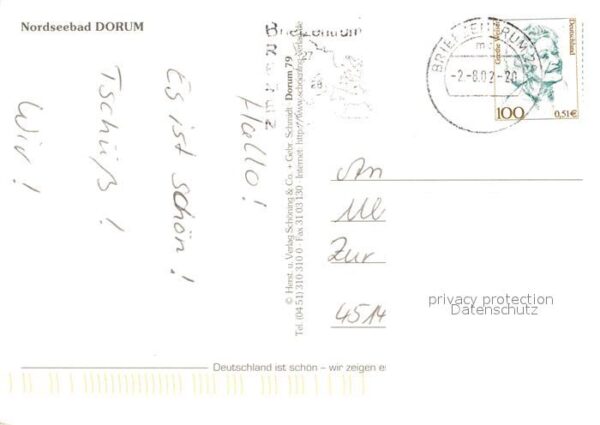 Nordseebad DORUM
Hallo!
Es ist schön!
Tschüß!
Wir!
© Herst. u. Verlag Schöning & Co. + Gebr. Schmidt Dorum 79
Tel. (04 51) 310 310 0 · Fax 31 03 130 · Internet: http://www.schoening-verlag.de
Briefzentrum
27
BRIEFZENTRUM 27
-2.-8.02-20
Deutschland
100
0,51€
An
Zur
4514
privacy protection
Datenschutz
Deutschland ist schön – wir zeigen es